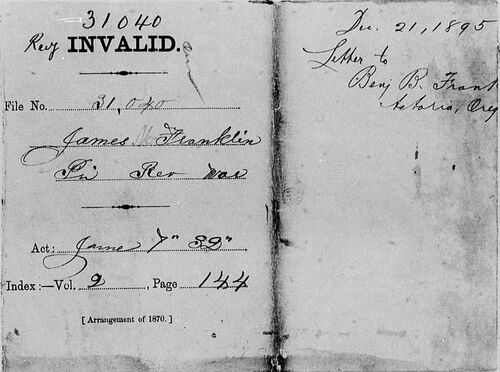 31040
Rev INVALID.
File No. 31,040
James Franklin
Pri Rev War
Act: June 7" 32"
Index:—Vol. 2, Page 144
[Arrangement of 1870.]
Dec. 21, 1895
Letter to
Benj B. Frank
Astoria, Oreg